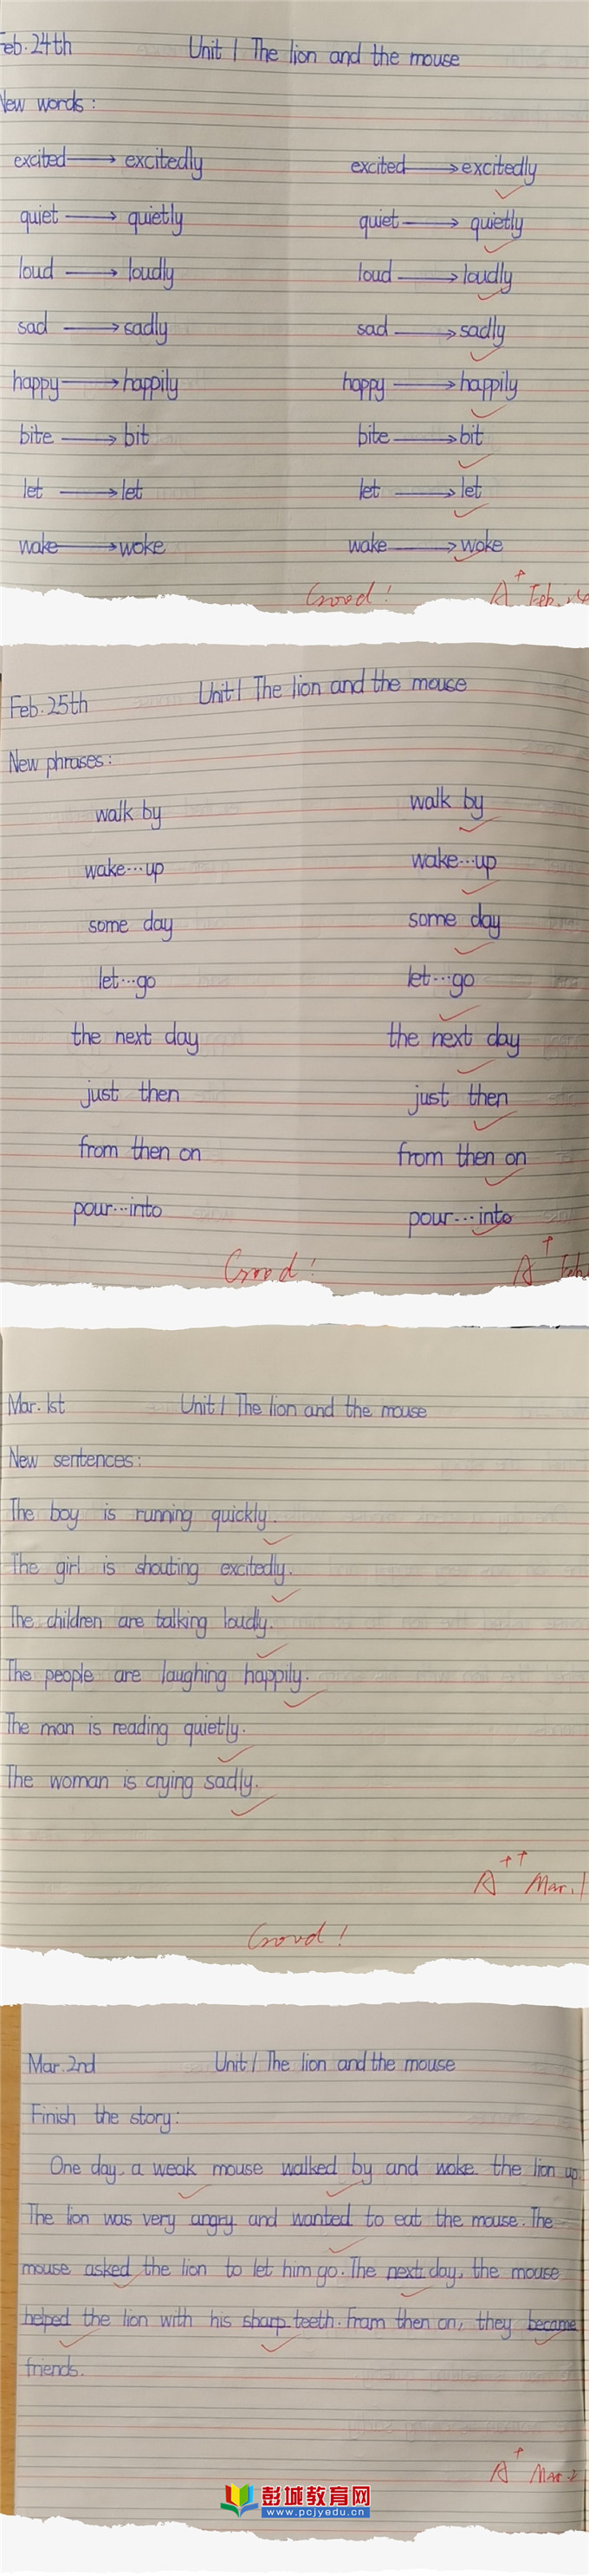 Feb. 24th Unit 1 The lion and the mouse
New words:
excited → excitedly excited → excitedly
quiet → quietly quiet → quietly
loud → loudly loud → loudly
sad → sadly sad → sadly
happy → happily happy → happily
bite → bit bite → bit
let → let let → let
wake → woke wake → woke
Good! A+ Feb. 24
Feb. 25th Unit 1 The lion and the mouse
New phrases:
walk by walk by
wake...up wake...up
some day some day
let...go let...go
the next day the next day
just then just then
from then on from then on
pour...into pour...into
Good! A+ Feb.
Mar. 1st Unit 1 The lion and the mouse
New sentences:
The boy is running quickly.
The girl is shouting excitedly.
The children are talking loudly.
The people are laughing happily.
The man is reading quietly.
The woman is crying sadly.
A++ Mar. 1
Good!
Mar. 2nd Unit 1 The lion and the mouse
Finish the story:
One day, a weak mouse walked by and woke the lion up.
The lion was very angry and wanted to eat the mouse. The
mouse asked the lion to let him go. The next day, the mouse
helped the lion with his sharp teeth. Fram then on, they became
friends.
A+ Mar. 2
彭城教育网
www.pcjyedu.cn